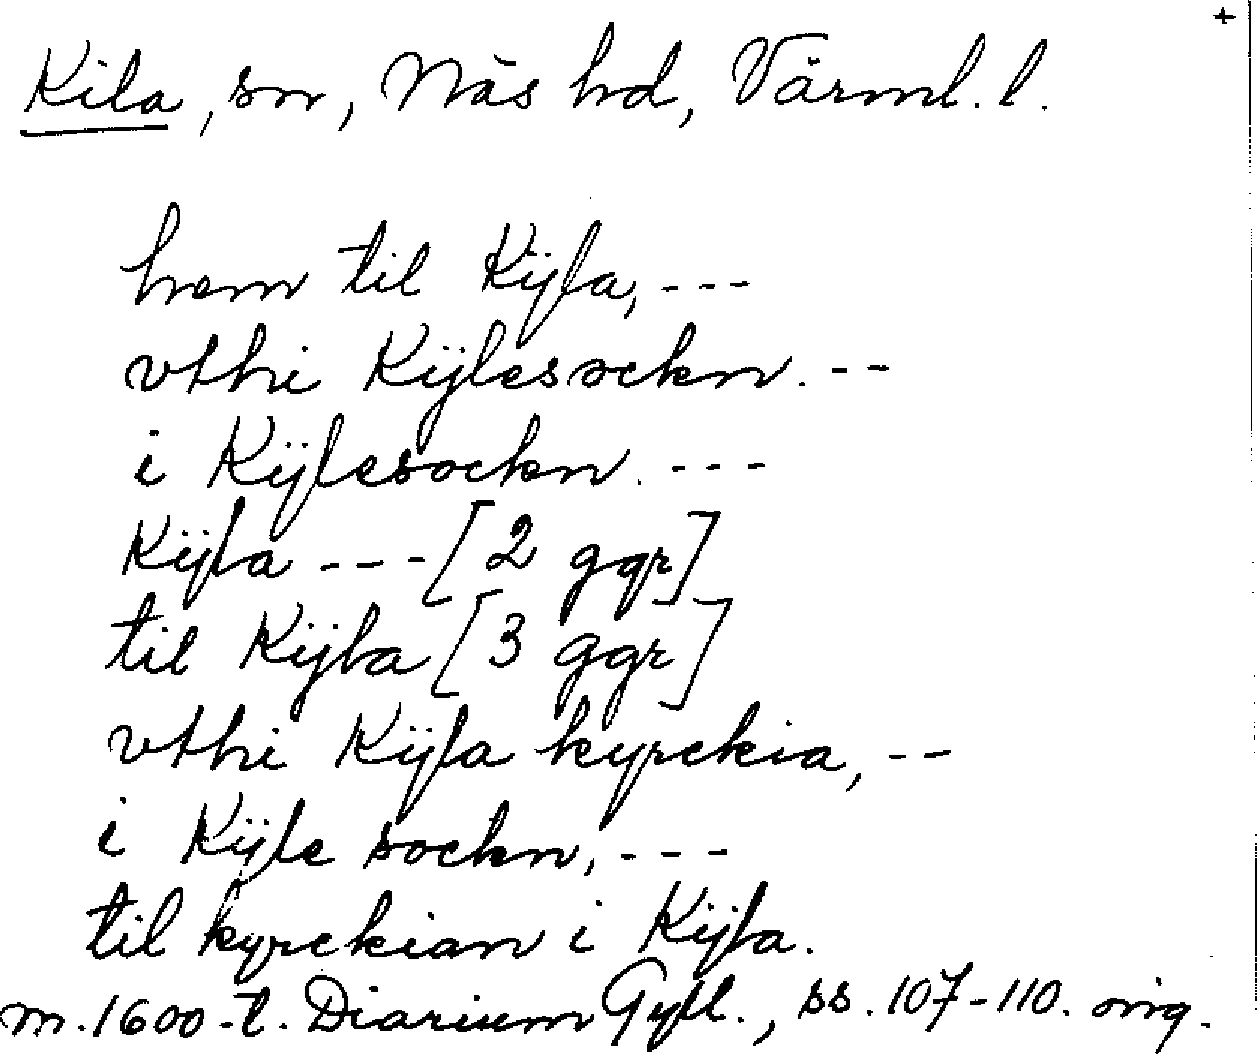 +
Kila, sn, Näs hd, Värml. l.
hem til Kÿla, ---
vthi Kÿlesockn. --
i Kÿlesockn. ---
Kÿla --- [2 ggr]
til Kÿla [3 ggr]
vthi Kÿla kyrckia, --
i Kÿle sockn, ---
til kyrckian i Kÿla.
m. 1600-t. Diarium Gyll., ss. 107-110. orig.